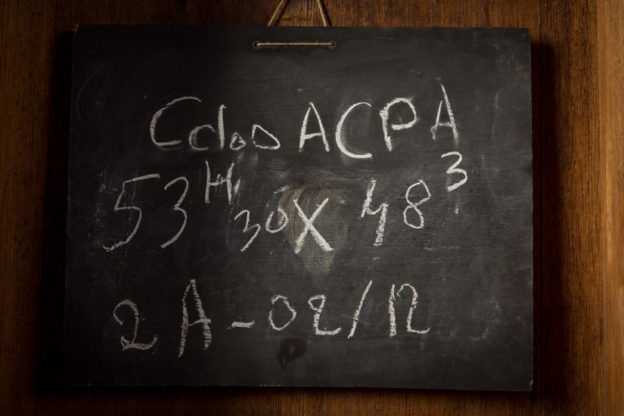 Cdoo ACPA
53 H 30 X 48 3
2A - 02/12